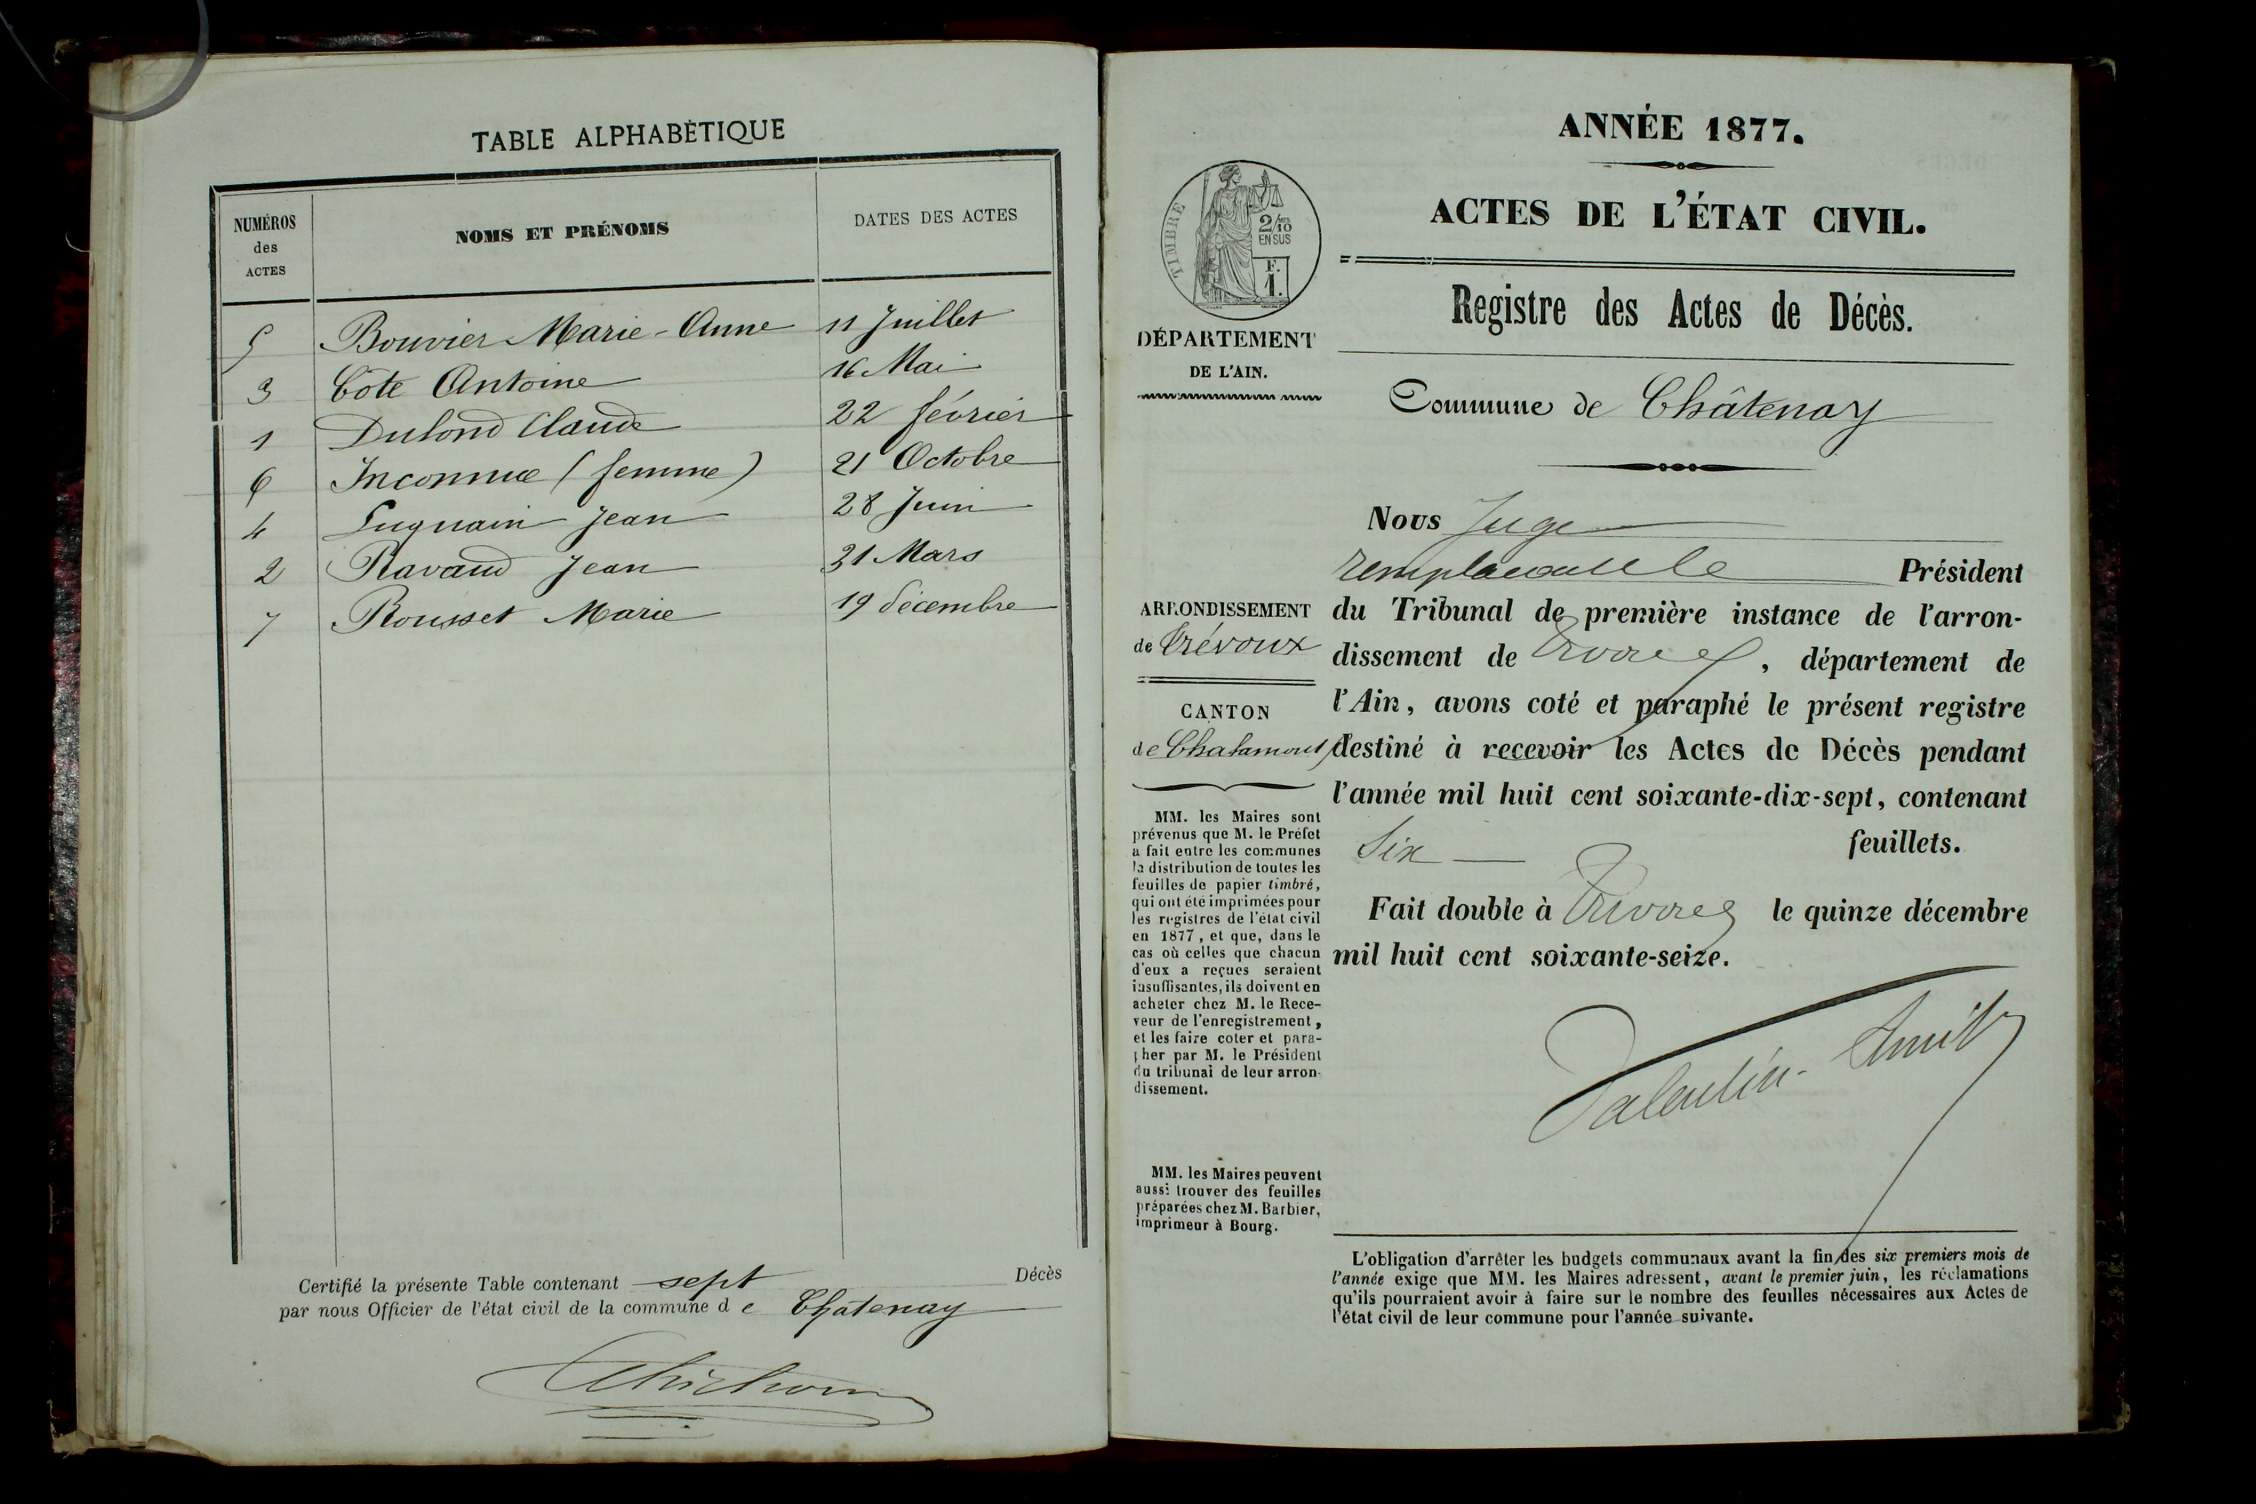 TABLE ALPHABÉTIQUE
NUMÉROS des ACTES
NOMS ET PRÉNOMS
DATES DES ACTES
5 Bouvier Marie-Anne 11 Juillet
3 Côte Antoine 16 Mai
1 Dufond Claude 22 février
6 Inconnue (femme) 21 Octobre
4 Jean 28 Juin
2 Ravaud Jean 31 Mars
7 Rousset Marie 19 décembre
Certifié la présente Table contenant sept Décès
par nous Officier de l'état civil de la commune de Châtenay
ANNÉE 1877.
ACTES DE L'ÉTAT CIVIL.
Registre des Actes de Décès.
Commune de Châtenay
TIMBRE
2/10
EN SUS
F.
1.
DÉPARTEMENT
DE L'AIN.
ARRONDISSEMENT
de Trévoux
CANTON
de Chalamont
MM. les Maires sont
prévenus que M. le Préfet
a fait entre les communes
la distribution de toutes les
feuilles de papier timbré,
qui ont été imprimées pour
les registres de l'état civil
en 1877, et que, dans le
cas où celles que chacun
d'eux a reçues seraient
insuffisantes, ils doivent en
acheter chez M. le Rece-
veur de l'enregistrement,
et les faire coter et para-
pher par M. le Président
du tribunal de leur arron-
dissement.
MM. les Maires peuvent
aussi trouver des feuilles
préparées chez M. Barbier,
imprimeur à Bourg.
Nous Juge
remplaçant le Président
du Tribunal de première instance de l'arron-
dissement de Trévoux, département de
l'Ain, avons coté et paraphé le présent registre
destiné à recevoir les Actes de Décès pendant
l'année mil huit cent soixante-dix-sept, contenant
Six feuillets.
Fait double à Trévoux le quinze décembre
mil huit cent soixante-seize.
Valentin-Smith
L'obligation d'arrêter les budgets communaux avant la fin des six premiers mois de
l'année exige que MM. les Maires adressent, avant le premier juin, les réclamations
qu'ils pourraient avoir à faire sur le nombre des feuilles nécessaires aux Actes de
l'état civil de leur commune pour l'année suivante.